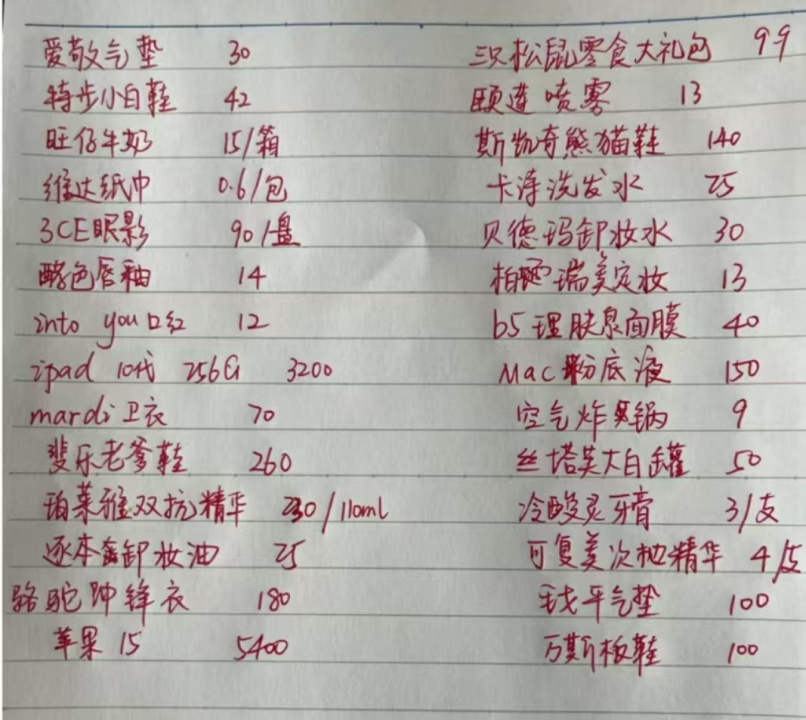 爱敬气垫 30
特步小白鞋 42
旺仔牛奶 15/箱
维达纸巾 0.6/包
3CE眼影 90/盘
酪色唇釉 14
into you口红 12
ipad 10代 256G 3200
mardi卫衣 70
斐乐老爹鞋 260
珀莱雅双抗精华 230/110ml
逐本卸妆油 25
骆驼冲锋衣 180
苹果15 5400
三只松鼠零食大礼包 9.9
颐莲喷雾 13
斯凯奇熊猫鞋 140
卡诗洗发水 25
贝德玛卸妆水 30
柏瑞美定妆 13
b5理肤泉面膜 40
Mac粉底液 150
空气炸锅 9
丝塔芙大白罐 50
冷酸灵牙膏 3/支
可复美次抛精华 4/支
毛戈平气垫 100
万斯板鞋 100